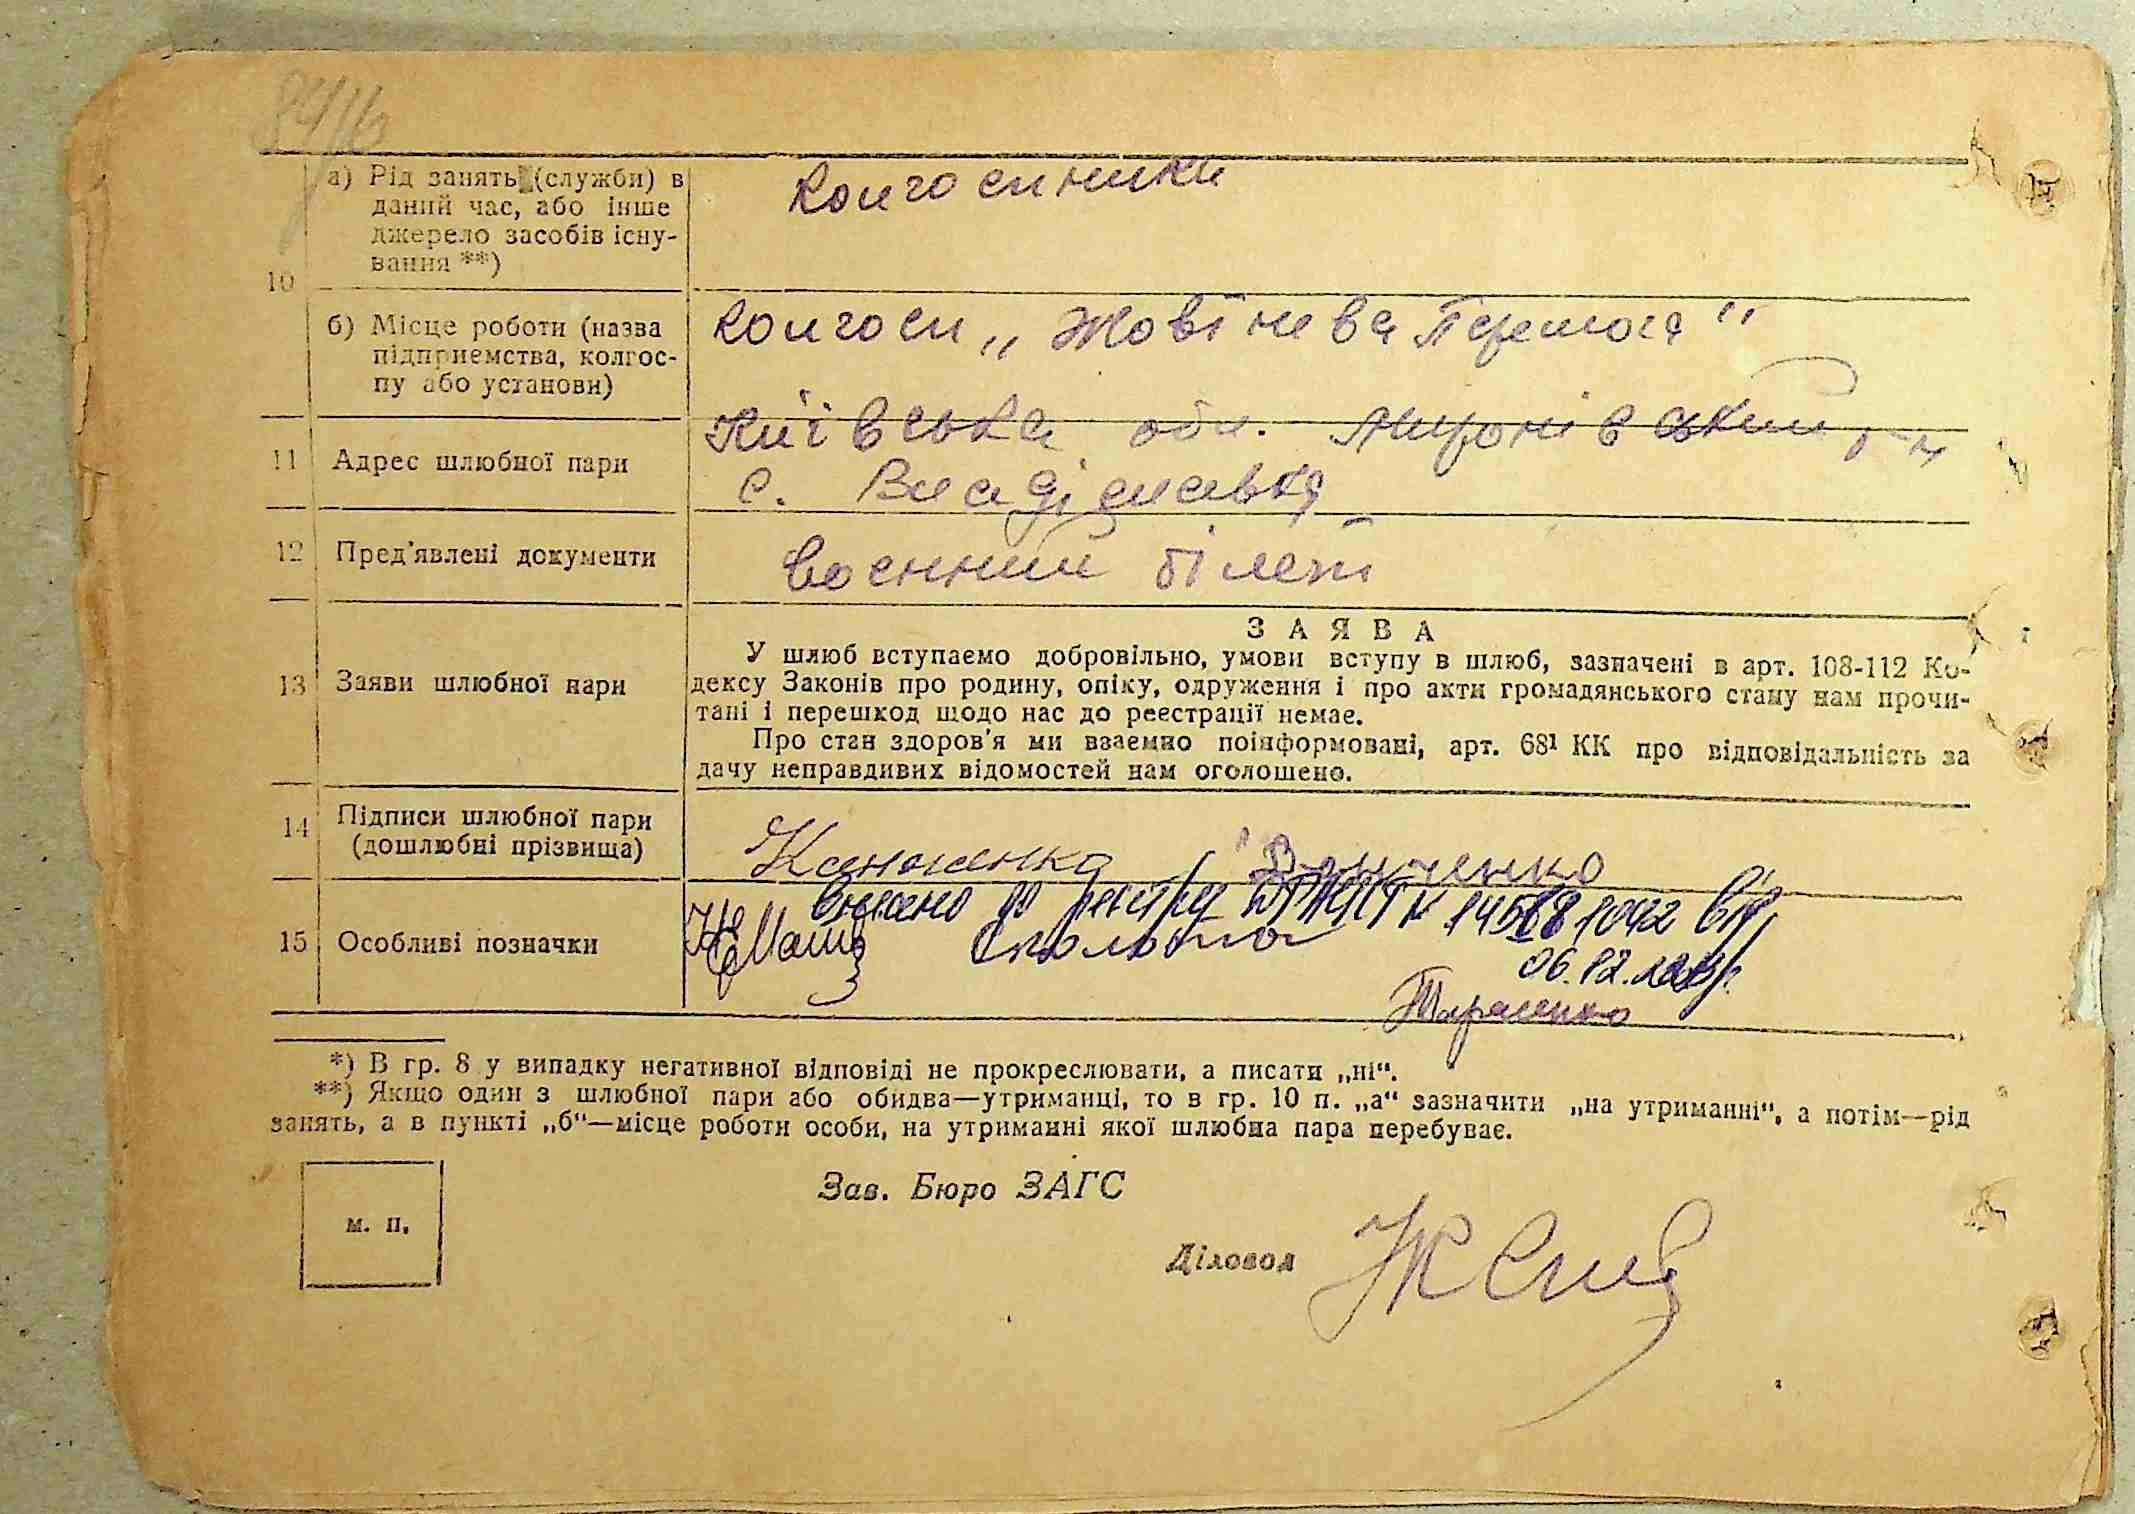 а) Рід занять (служби) в
даний час, або інше
джерело засобів існу-
вання **)
колгоспники
10
б) Місце роботи (назва
підприємства, колгос-
пу або установи)
колгосп „Жовтнева Перемога"
11 Адрес шлюбної пари
Київська обл. Миронівський р-н
с. Владіславка
12 Пред'явлені документи
воєнний білет
13 Заяви шлюбної пари
ЗАЯВА
У шлюб вступаємо добровільно, умови вступу в шлюб, зазначені в арт. 108-112 Ко-
дексу Законів про родину, опіку, одруження і про акти громадянського стану нам прочи-
тані і перешкод щодо нас до реєстрації немає.
Про стан здоров'я ми взаємно поінформовані, арт. 68¹ КК про відповідальність за
дачу неправдивих відомостей нам оголошено.
14 Підписи шлюбної пари
(дошлюбні прізвища)
15 Особливі позначки
внесено до реєстру
06.12.
Тарасенко
*) В гр. 8 у випадку негативної відповіді не прокреслювати, а писати „ні".
**) Якщо один з шлюбної пари або обидва—утриманці, то в гр. 10 п. „а" зазначити „на утриманні", а потім—рід
занять, а в пункті „б"—місце роботи особи, на утриманні якої шлюбна пара перебуває.
м. п.
Зав. Бюро ЗАГС
Діловод